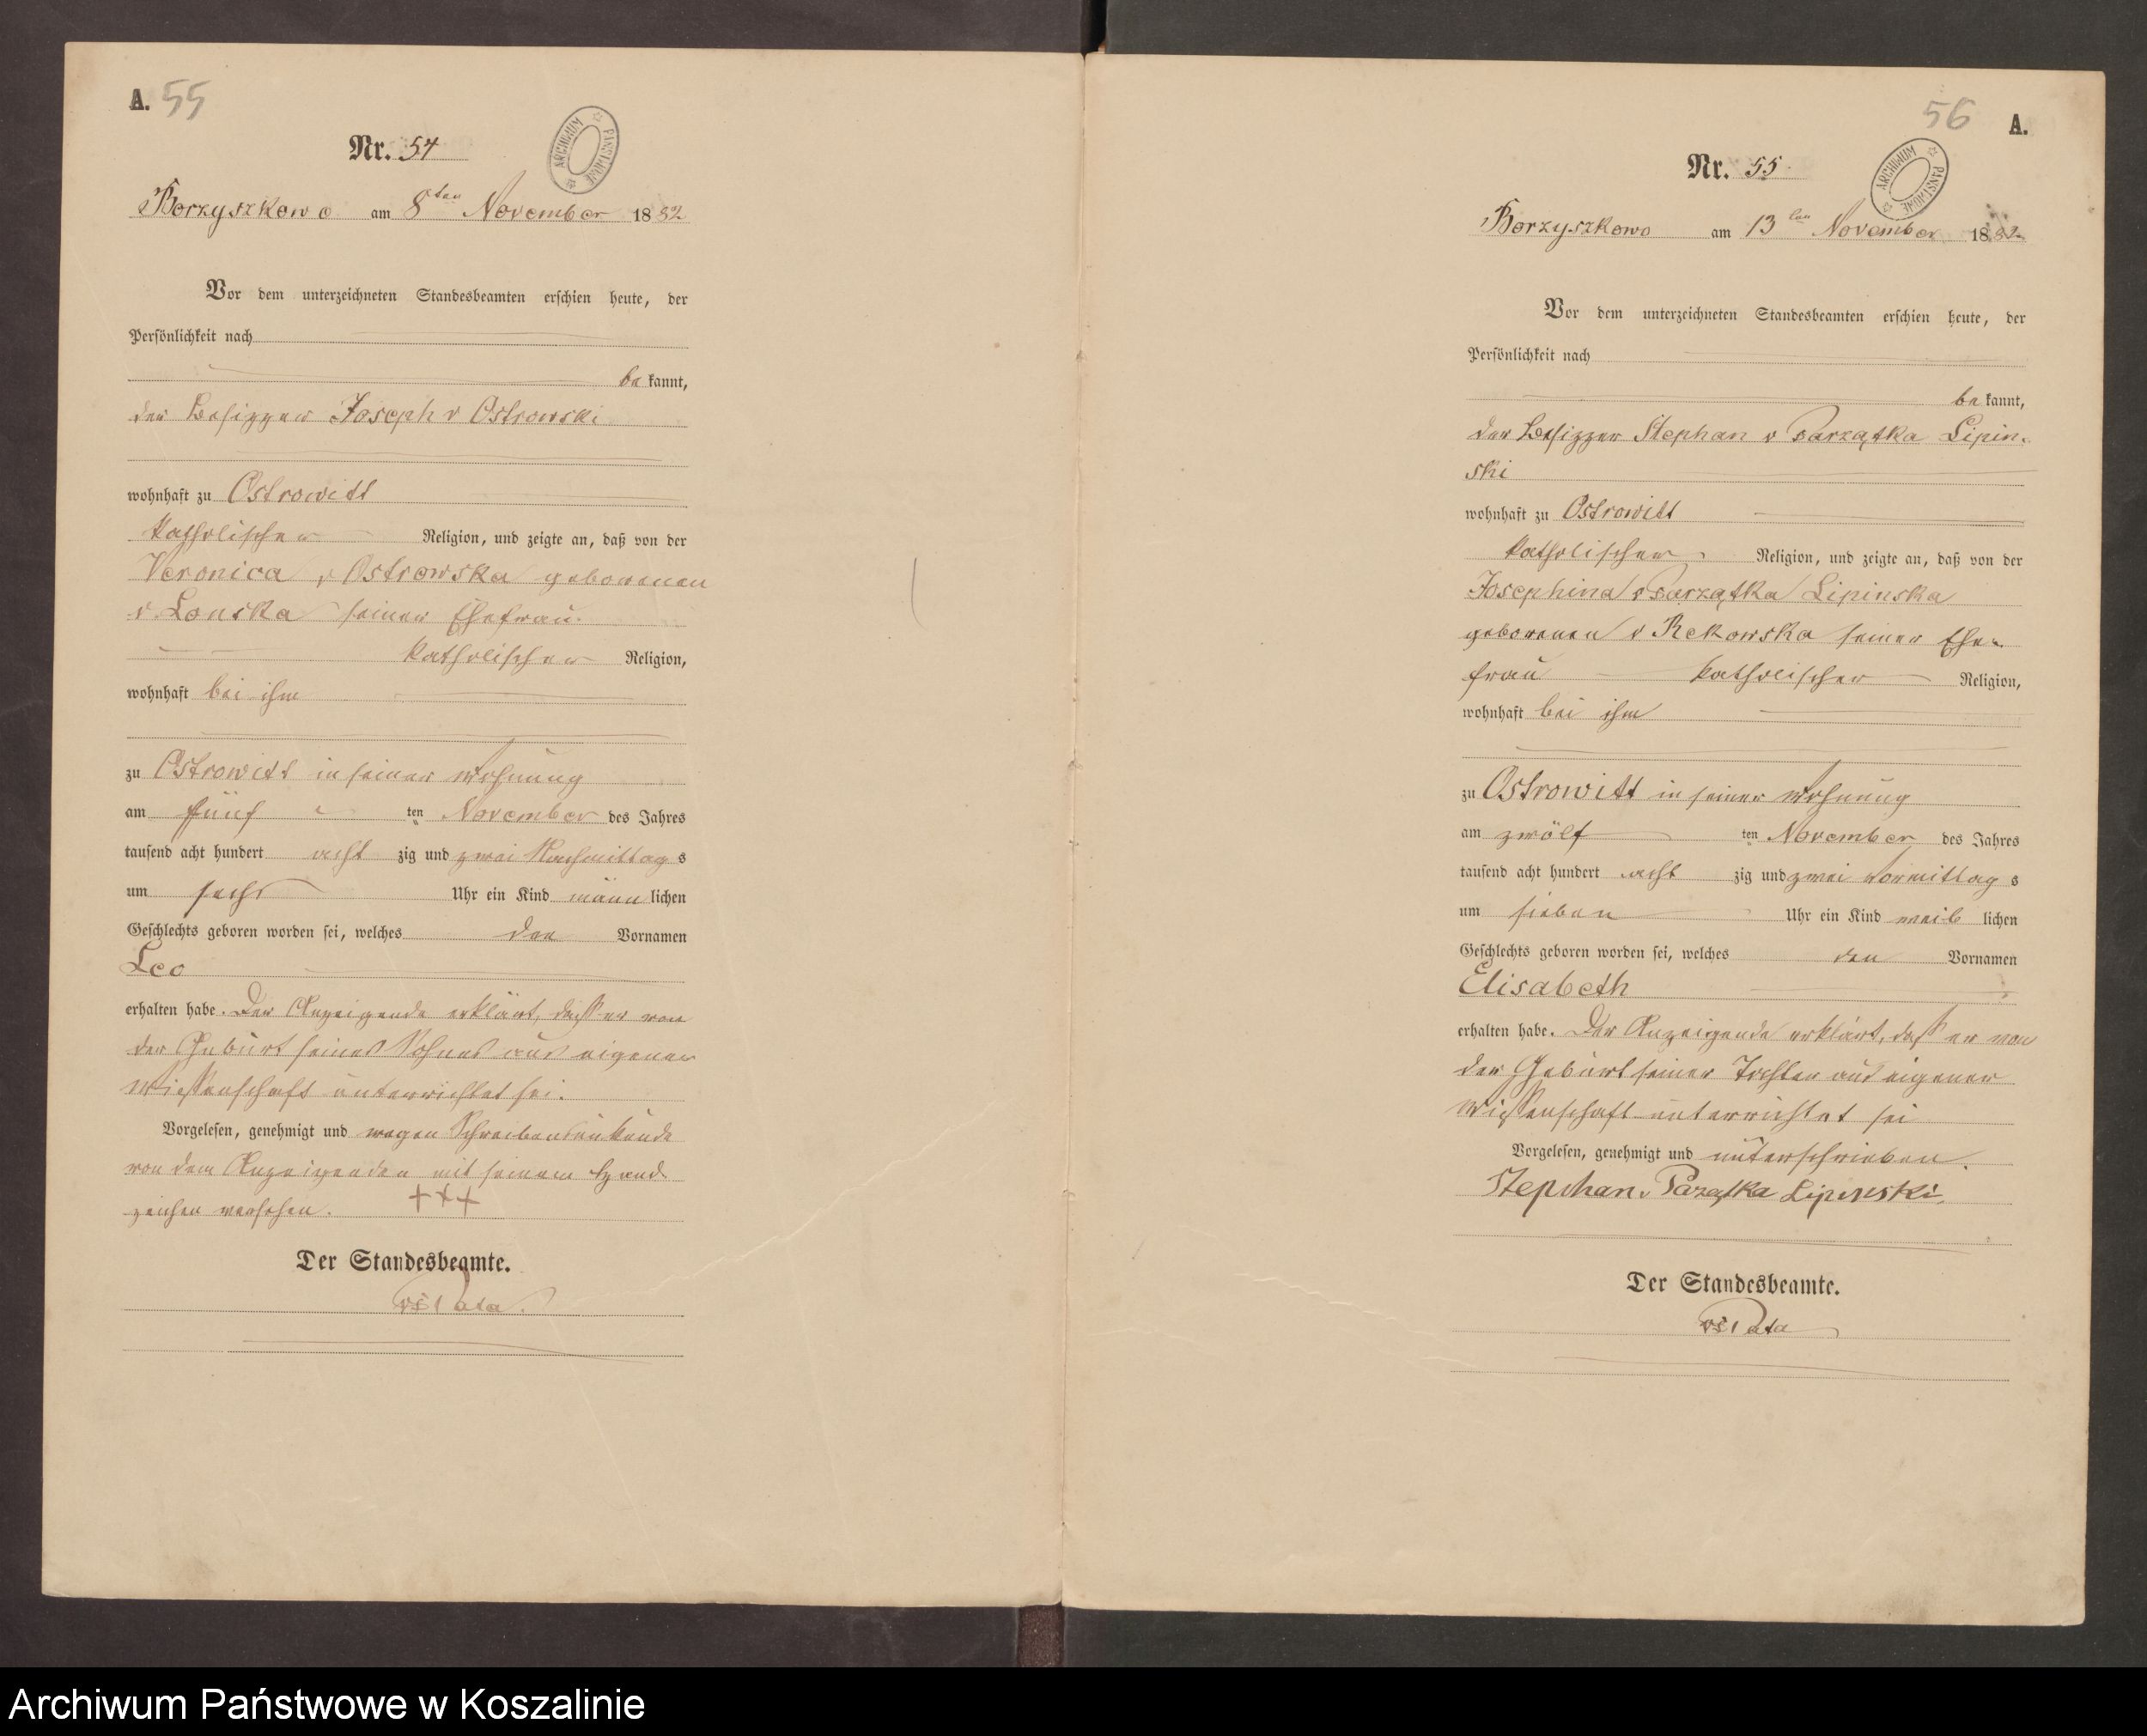 A. 55
Nr. 54
ARCHIWUM PAŃSTWOWE
Borzyszkowo am 8ten November 1882
Vor dem unterzeichneten Standesbeamten erschien heute, der
Persönlichkeit nach
bekannt,
der Besitzer Joseph v Ostrowski
wohnhaft zu Ostrowitt
katholischer Religion, und zeigte an, daß von der
Veronica v Ostrowska geborenen
v. Lonska seiner Ehefrau
katholischer Religion,
wohnhaft bei ihm
zu Ostrowitt in seiner Wohnung
am fünf ten November des Jahres
tausend acht hundert acht zig und zwei Nachmittags
um sechs Uhr ein Kind männlichen
Geschlechts geboren worden sei, welches den Vornamen
Leo
erhalten habe. Der Anzeigende erklärt, dass er von
der Geburt seines Sohnes aus eigener
Wissenschaft unterrichtet sei.
Vorgelesen, genehmigt und wegen Schreibensunkunde
von dem Anzeigenden mit seinem Hand
zeichen versehen. +++
Der Standesbeamte.
56 A.
Nr. 55.
ARCHIWUM PAŃSTWOWE
Borzyszkowo am 13ten November 1882
Vor dem unterzeichneten Standesbeamten erschien heute, der
Persönlichkeit nach
bekannt,
der Besitzer Stephan v Parzątka Lipin-
ski
wohnhaft zu Ostrowitt
katholischer Religion, und zeigte an, daß von der
Josephina v Parzątka Lipinska
geborenen v Rekowska seiner Ehe-
frau katholischer Religion,
wohnhaft bei ihm
zu Ostrowitt in seiner Wohnung
am zwölf ten November des Jahres
tausend acht hundert acht zig und zwei Vormittags
um sieben Uhr ein Kind weiblichen
Geschlechts geboren worden sei, welches den Vornamen
Elisabeth
erhalten habe. Der Anzeigende erklärt, daß er von
der Geburt seiner Tochter aus eigener
Wissenschaft unterrichtet sei
Vorgelesen, genehmigt und unterschrieben.
Stephan v Parzątka Lipinski.
Der Standesbeamte.
Archiwum Państwowe w Koszalinie